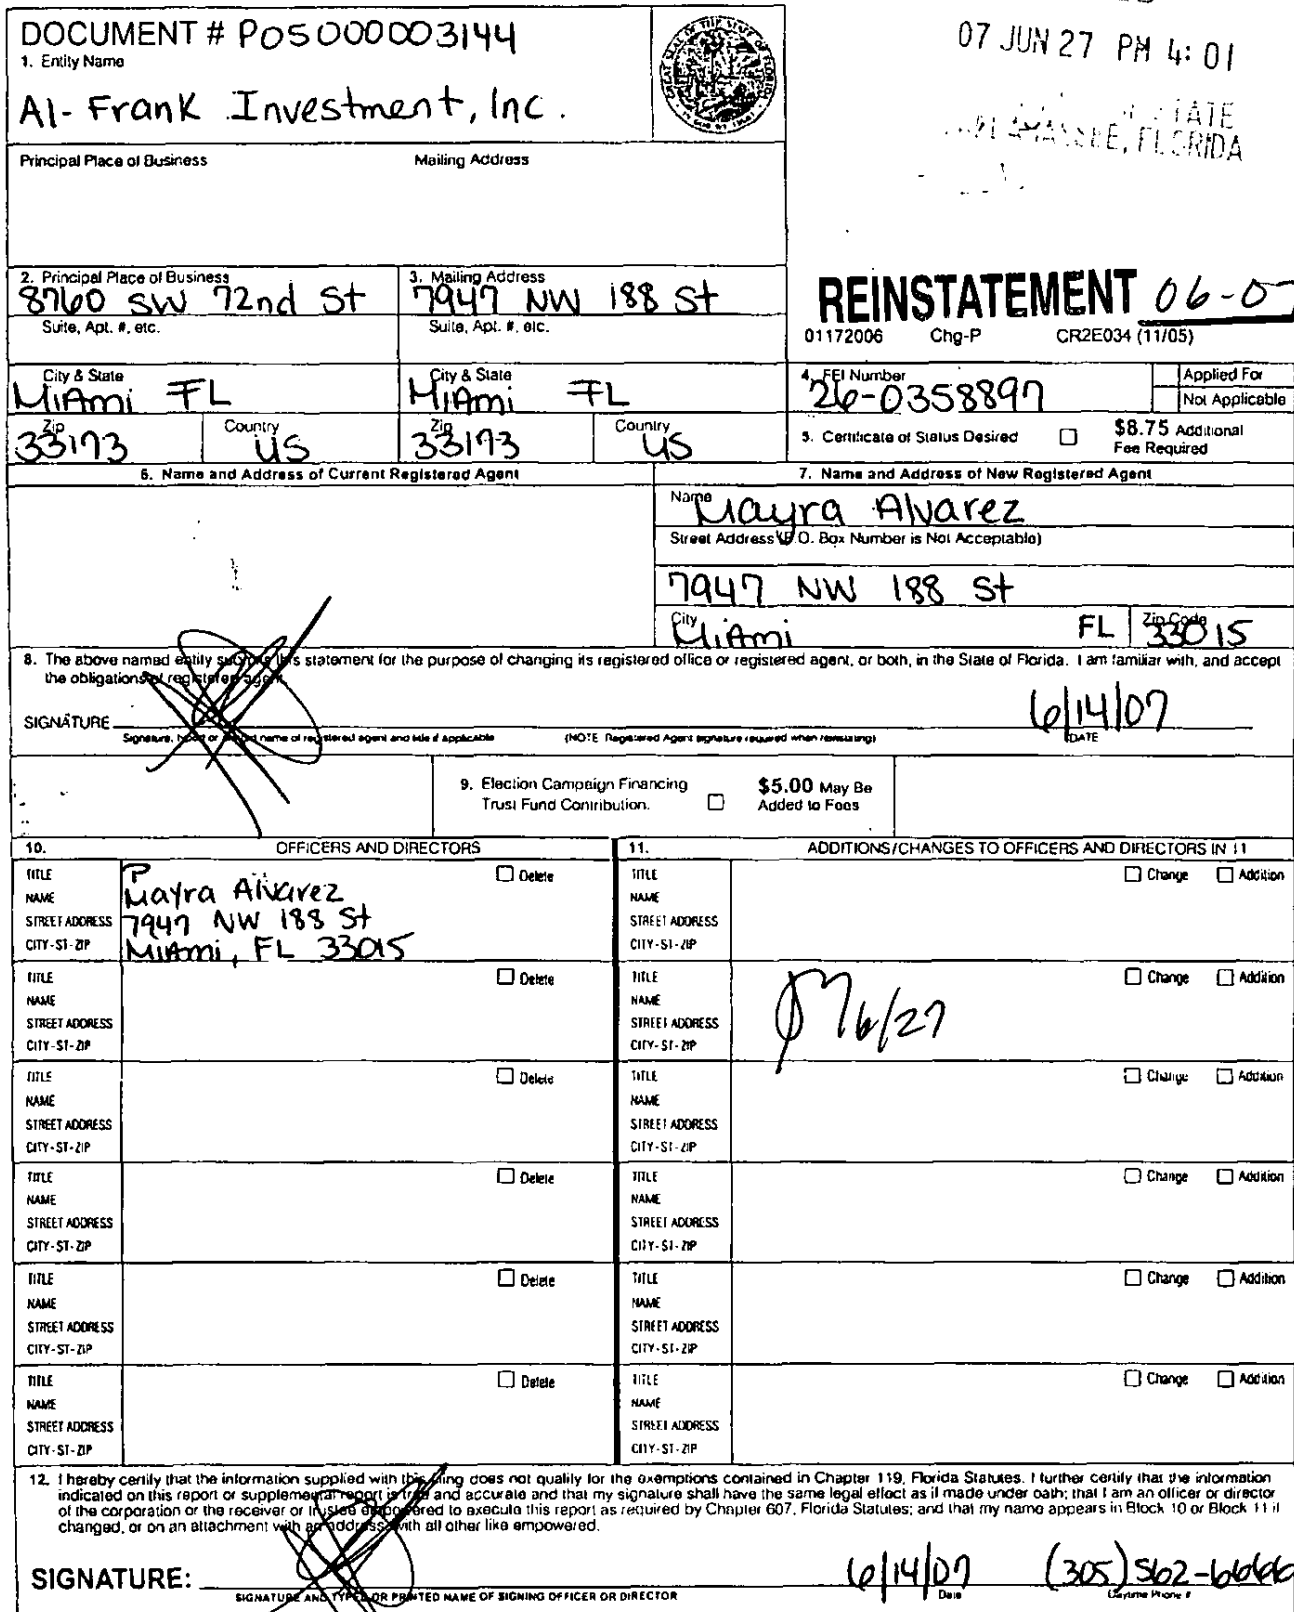 DOCUMENT # P05000003144
1. Entity Name
Al-Frank Investment, Inc.
07 JUN 27 PM 4:01
STATE
TALLAHASSEE, FLORIDA
Principal Place of Business Mailing Address
2. Principal Place of Business
8760 SW 72nd St
3. Mailing Address
7947 NW 188 St
Suite, Apt. #, etc. Suite, Apt. #, etc.
REINSTATEMENT 06-07
01172006 Chg-P CR2E034 (11/05)
City & State
Miami FL
City & State
Miami FL
4. FEI Number
26-0358897
Applied For
Not Applicable
Zip
33173
Country
US
Zip
33173
Country
US
5. Certificate of Status Desired
$8.75 Additional
Fee Required
6. Name and Address of Current Registered Agent
7. Name and Address of New Registered Agent
Name
Mayra Alvarez
Street Address (P.O. Box Number is Not Acceptable)
7947 NW 188 St
City
Miami
FL
Zip Code
33015
8. The above named entity submits this statement for the purpose of changing its registered office or registered agent, or both, in the State of Florida. I am familiar with, and accept
the obligations of registered agent.
SIGNATURE
6/14/07
Signature, typed or printed name of registered agent and title if applicable (NOTE Registered Agent signature required when reinstating) DATE
9. Election Campaign Financing
Trust Fund Contribution.
$5.00 May Be
Added to Fees
10. OFFICERS AND DIRECTORS
11. ADDITIONS/CHANGES TO OFFICERS AND DIRECTORS IN 11
TITLE P Delete
NAME Mayra Alvarez
STREET ADDRESS 7947 NW 188 St
CITY-ST-ZIP Miami, FL 33015
TITLE Change Addition
NAME
STREET ADDRESS
CITY-ST-ZIP
TITLE Delete
NAME
STREET ADDRESS
CITY-ST-ZIP
TITLE Change Addition
NAME
STREET ADDRESS 6/27
CITY-ST-ZIP
TITLE Delete
NAME
STREET ADDRESS
CITY-ST-ZIP
TITLE Change Addition
NAME
STREET ADDRESS
CITY-ST-ZIP
TITLE Delete
NAME
STREET ADDRESS
CITY-ST-ZIP
TITLE Change Addition
NAME
STREET ADDRESS
CITY-ST-ZIP
TITLE Delete
NAME
STREET ADDRESS
CITY-ST-ZIP
TITLE Change Addition
NAME
STREET ADDRESS
CITY-ST-ZIP
TITLE Delete
NAME
STREET ADDRESS
CITY-ST-ZIP
TITLE Change Addition
NAME
STREET ADDRESS
CITY-ST-ZIP
12. I hereby certify that the information supplied with this filing does not qualify for the exemptions contained in Chapter 119, Florida Statutes. I further certify that the information
indicated on this report or supplemental report is true and accurate and that my signature shall have the same legal effect as if made under oath; that I am an officer or director
of the corporation or the receiver or trustee empowered to execute this report as required by Chapter 607, Florida Statutes; and that my name appears in Block 10 or Block 11 if
changed, or on an attachment with an address, with all other like empowered.
SIGNATURE:
6/14/07 (305) 562-6666
SIGNATURE AND TYPED OR PRINTED NAME OF SIGNING OFFICER OR DIRECTOR Date Daytime Phone #